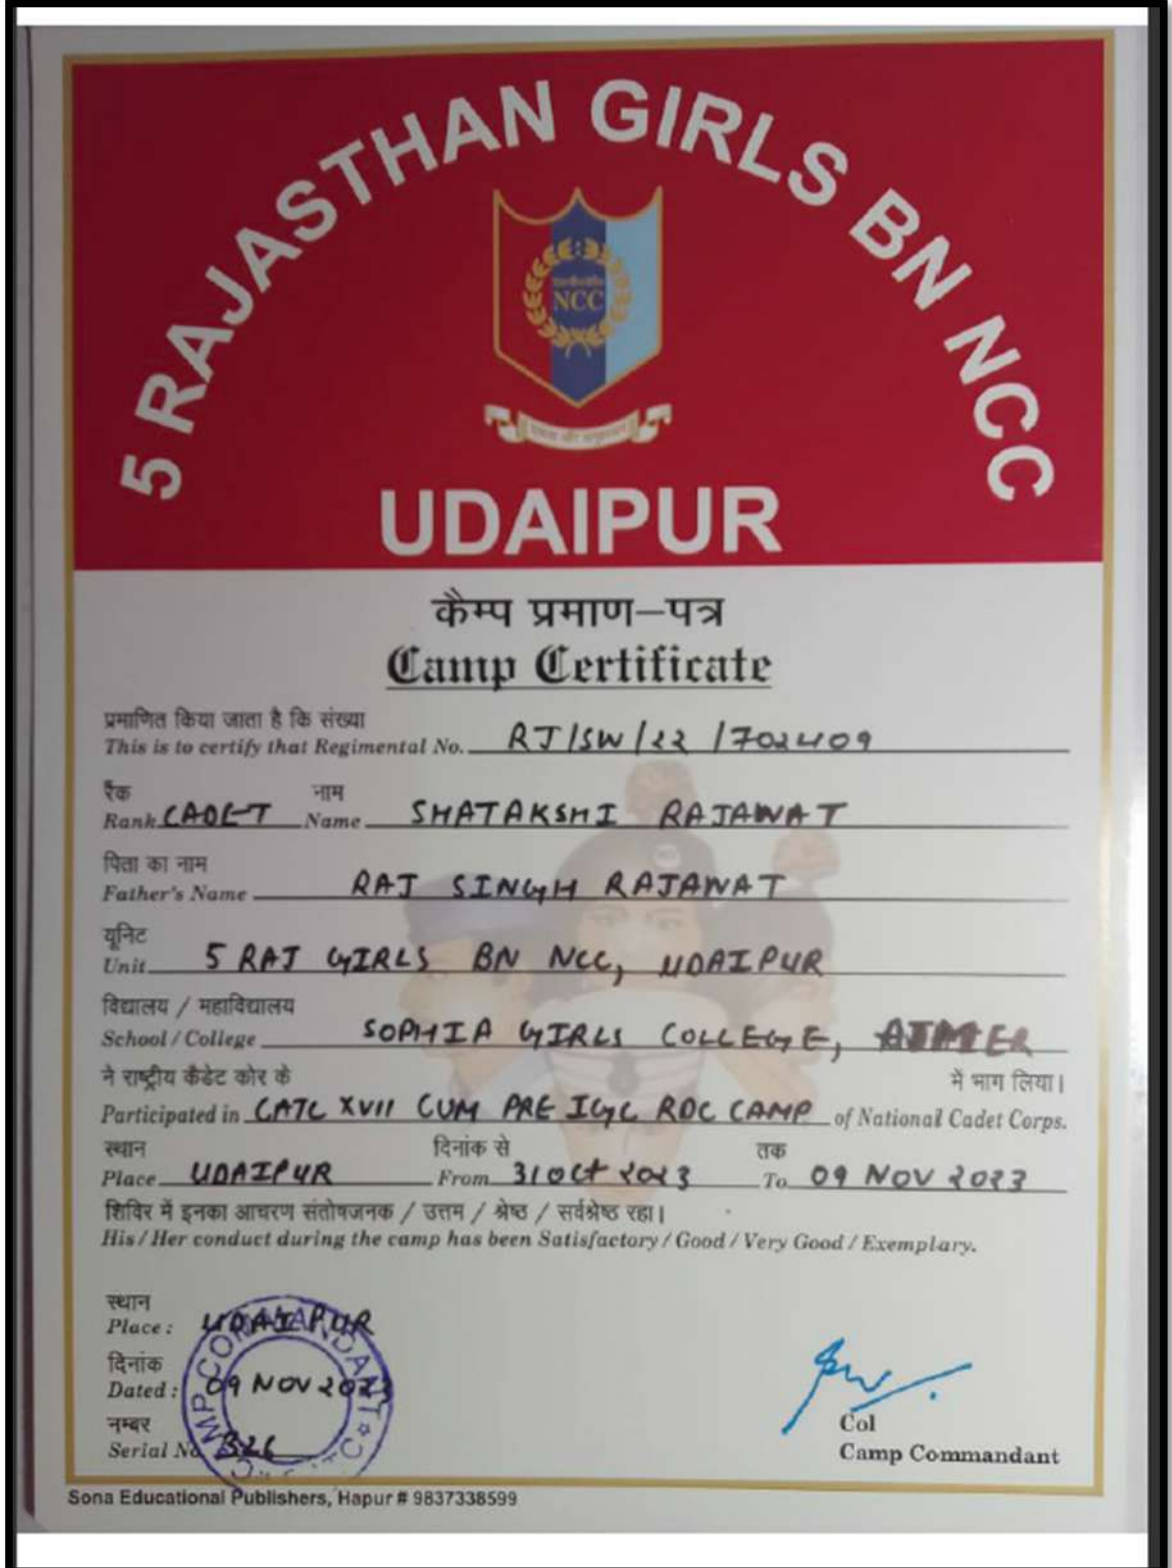 5 RAJASTHAN GIRLS BN NCC
NCC
UDAIPUR
कैम्प प्रमाण–पत्र
Camp Certificate
प्रमाणित किया जाता है कि संख्या
This is to certify that Regimental No. RJ/SW/22/702409
रैंक नाम
Rank CADET Name SHATAKSHI RAJAWAT
पिता का नाम
Father's Name RAJ SINGH RAJAWAT
यूनिट
Unit 5 RAJ GIRLS BN NCC, UDAIPUR
विद्यालय / महाविद्यालय
School / College SOPHIA GIRLS COLLEGE, AJMER
ने राष्ट्रीय कैडेट कोर के में भाग लिया।
Participated in CATC XVII CUM PRE IGC RDC CAMP of National Cadet Corps.
स्थान दिनांक से तक
Place UDAIPUR From 31 Oct 2023 To 09 NOV 2023
शिविर में इनका आचरण संतोषजनक / उत्तम / श्रेष्ठ / सर्वश्रेष्ठ रहा।
His / Her conduct during the camp has been Satisfactory / Good / Very Good / Exemplary.
स्थान
Place : UDAIPUR
दिनांक
Dated : 09 NOV 2023
नम्बर
Serial No 326
CAMP COMMANDANT
Col
Camp Commandant
Sona Educational Publishers, Hapur # 9837338599